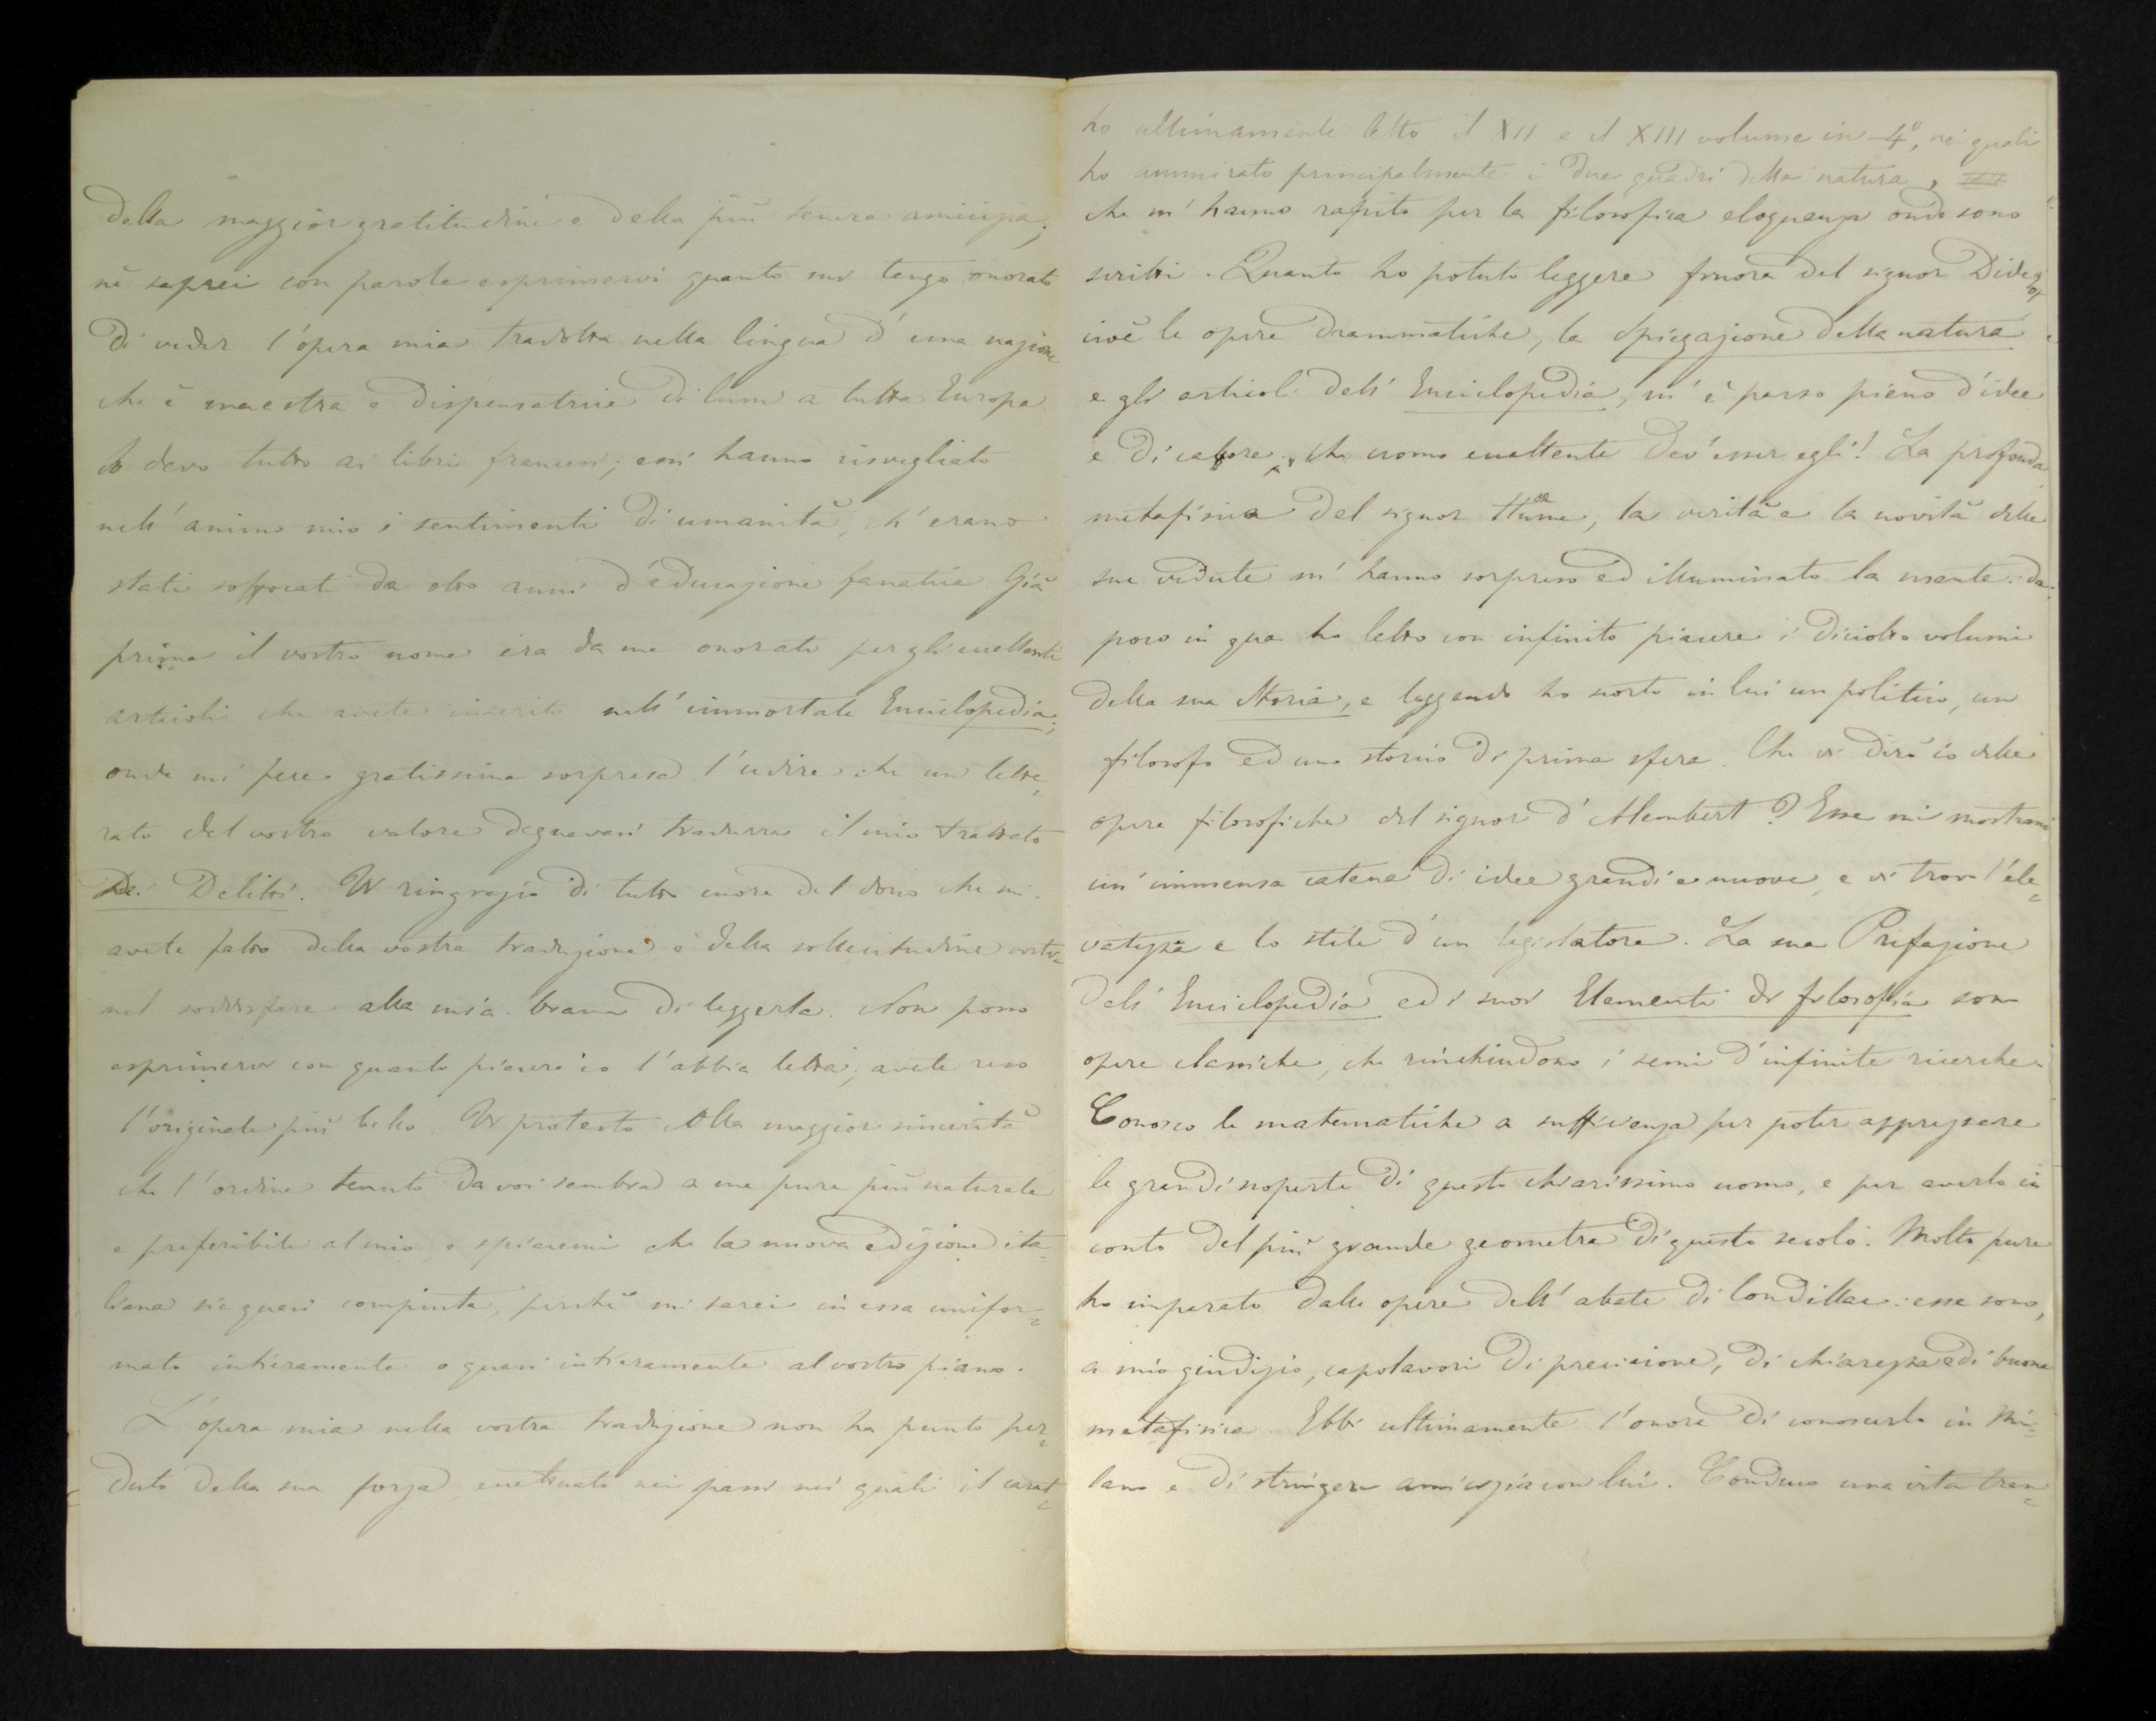 della maggior gratitudine e della più tenera amicizia;
nè saprei con parole esprimervi quanto mi tengo onorato
di veder l'opera mia tradotta nella lingua d'una nazione
che è maestra e dispensatrice di lumi a tutta Europa.
Io devo tutto ai libri francesi; essi hanno risvegliato
nell'animo mio i sentimenti di umanità, ch'erano
stati soffocati da otto anni d'educazione fanatica. Già
prima il vostro nome era da me onorato per gli eccellenti
articoli che avete inserito nell'immortale Enciclopedia;
onde mi fece gratissima sorpresa l'udire che un lette=
rato del vostro valore degnavasi tradurre il mio trattato
Dei Delitti. Vi ringrazio di tutto cuore del dono che mi
avete fatto della vostra traduzione, e della sollecitudine vostra
nel soddisfare alla mia brama di leggerla. Non posso
esprimervi con quanto piacere io l'abbia letta; avete reso
l'originale più bello. Vi protesto colla maggior sincerità
che l'ordine tenuto da voi sembra a me pure più naturale
e preferibile al mio, e spiacemi che la nuova edizione ita=
liana sia quasi compiuta, perchè mi sarei in essa unifor=
mato intieramente o quasi intieramente al vostro piano.
L'opera mia nella vostra traduzione non ha punto per=
duto della sua forza, eccettuato nei passi nei quali il carat=
ho ultimamente letto il XII e il XIII volume in -4°, nei quali
ho ammirato principalmente i due quadri della natura,
che m'hanno rapito per la filosofica eloquenza onde sono
scritti. Quanto ho potuto leggere finora del signor Diderot
cioè le opere drammatiche, la Spiegazione della natura
e gli articoli dell'Enciclopedia, m'è parso pieno d'idee
e di calore. Che uomo eccellente dev'esser egli! La profonda
metafisica del signor Hume, la verità e la novità delle
sue vedute m'hanno sorpreso ed illuminato la mente: da
poco in qua ho letto con infinito piacere i diciotto volumi
della sua Storia, e leggendo ho scorto in lui un politico, un
filosofo ed uno storico di prima sfera. Che vi dirò io delle
opere filosofiche del signor d'Alembert? Esse mi mostrano
un'immensa catena di idee grandi e nuove, e vi trovo l'ele=
vatezza e lo stile d'un legislatore. La sua Prefazione
dell'Enciclopedia ed i suoi Elementi di filosofia sono
opere classiche, che rinchiudono i semi d'infinite ricerche.
Conosco le matematiche a sufficienza per poter apprezzare
le grandi scoperte di questo chiarissimo uomo, e per averlo in
conto del più grande geometra di questo secolo. Molto pure
ho imparato dalle opere dell'abate di Condillac: esse sono,
a mio giudizio, capolavori di precisione, di chiarezza e di buona
metafisica. Ebbi ultimamente l'onore di conoscerlo in Mi=
lano e di stringere amicizia con lui. Conduco una vita tran=